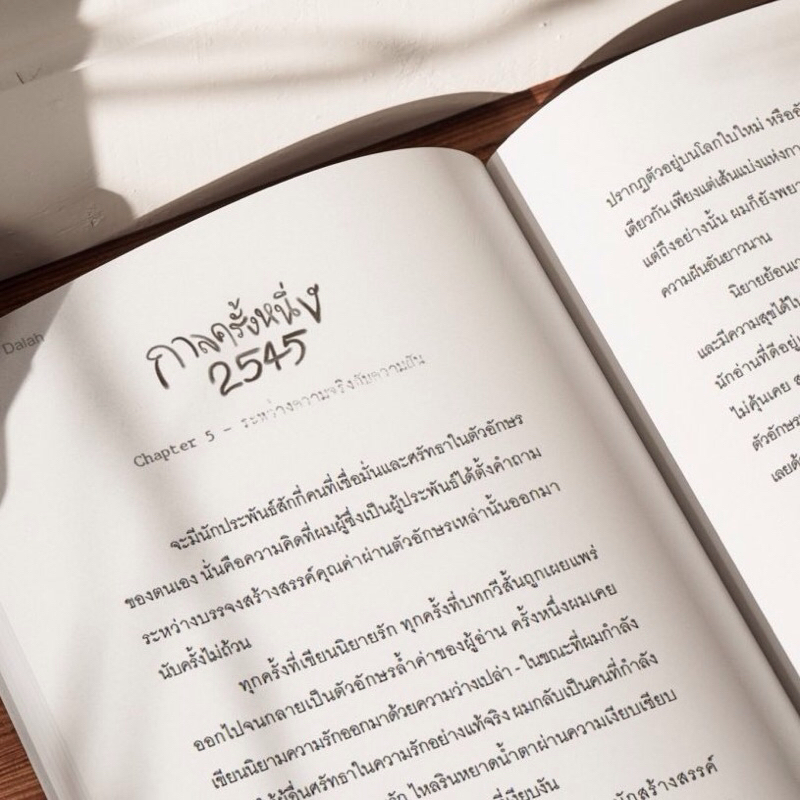 Dalah
กาลครั้งหนึ่ง
2545
Chapter 5 - ระหว่างความจริงกับความฝัน
จะมีนักประพันธ์สักกี่คนที่เชื่อมั่นและศรัทธาในตัวอักษร
ของตนเอง นั่นคือความคิดที่ผมผู้ซึ่งเป็นผู้ประพันธ์ได้ตั้งคำถาม
ระหว่างบรรจงสร้างสรรค์คุณค่าผ่านตัวอักษรเหล่านั้นออกมา
นับครั้งไม่ถ้วน
ทุกครั้งที่เขียนนิยายรัก ทุกครั้งที่บทกวีสั้นถูกเผยแพร่
ออกไปจนกลายเป็นตัวอักษรล้ำค่าของผู้อ่าน ครั้งหนึ่งผมเคย
เขียนนิยามความรักออกมาด้วยความว่างเปล่า - ในขณะที่ผมกำลัง
ให้ผู้อื่นศรัทธาในความรักอย่างแท้จริง ผมกลับเป็นคนที่กำลัง
ไหลรินหยาดน้ำตาผ่านความเงียบเชียบ
ที่เงียบงัน
นักสร้างสรรค์
ปรากฏตัวอยู่บนโลกใบใหม่ หรือ
เดียวกัน เพียงแต่เส้นแบ่งแห่ง
แต่ถึงอย่างนั้น ผมก็ยัง
ความฝันอันยาวนาน
นิยายย้อน
และมีความสุขได้
นักอ่านที่ดีอยู่
ไม่คุ้นเคย
ตัวอักษร
เลย